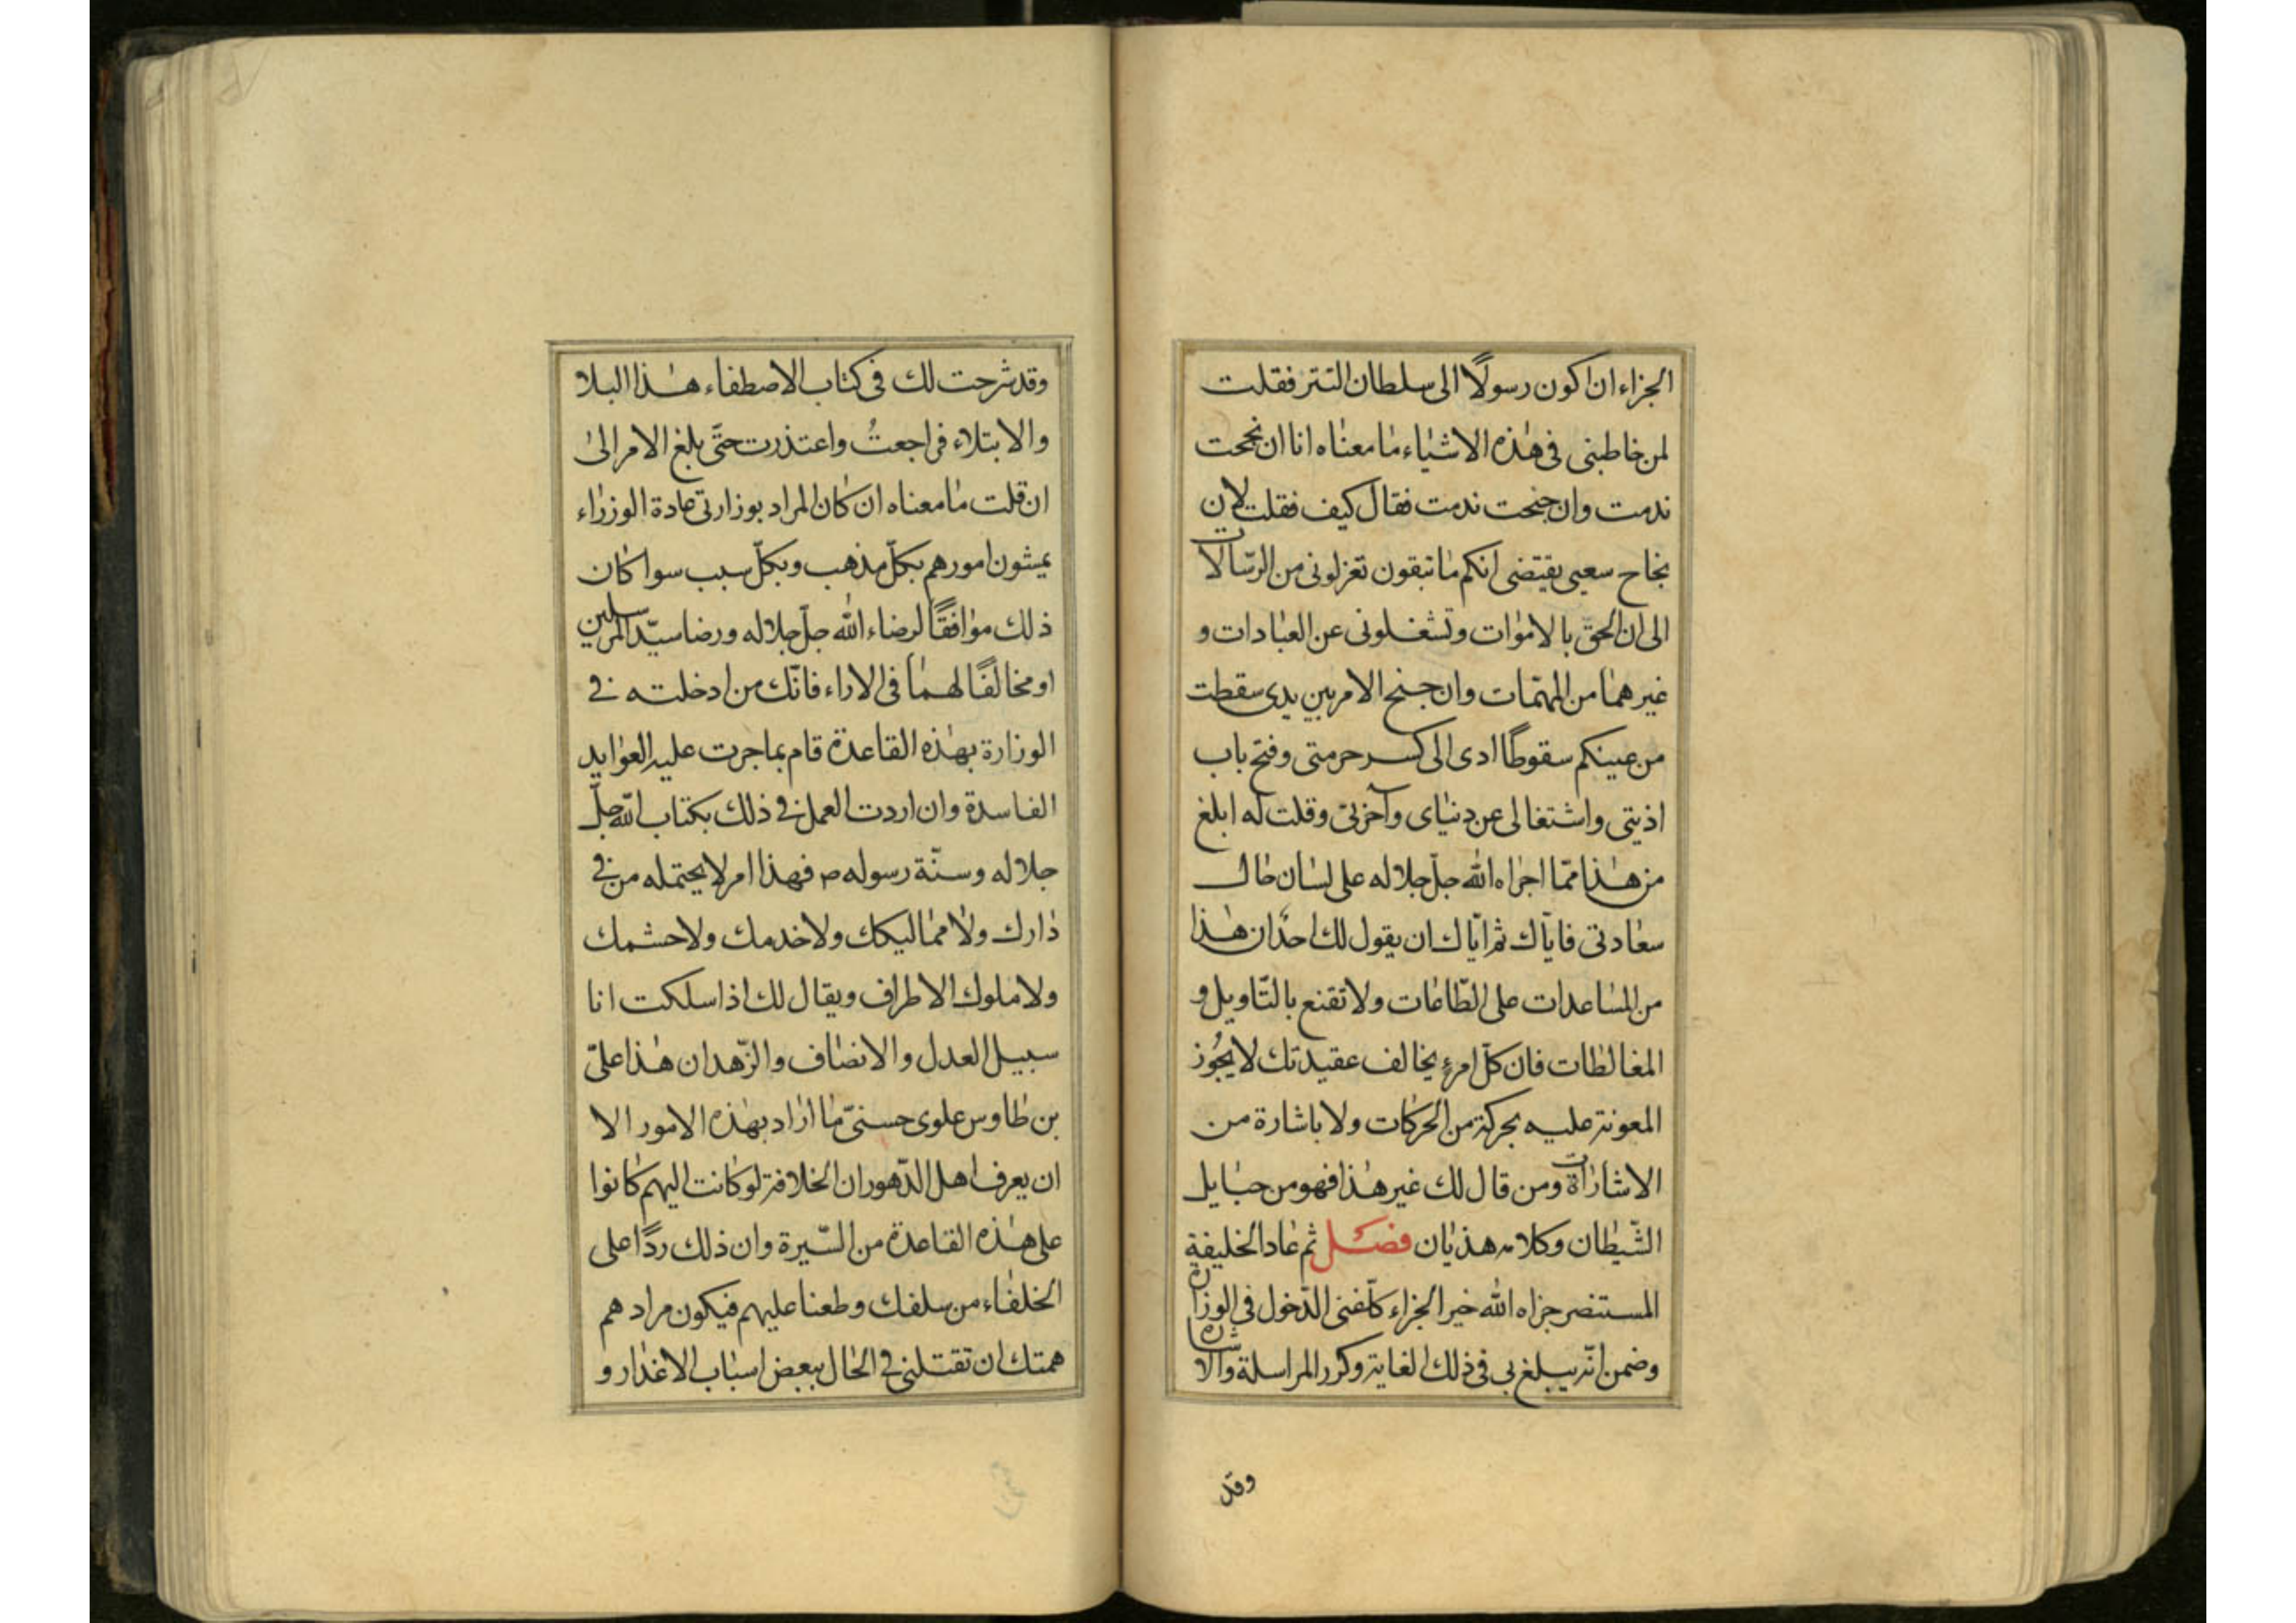 الجزاء ان اكون رسولًا الى سلطان التتر فقلت
لمن خاطبنى فى هذه الاشياء ما معناه انا ان نجحت
ندمت وان جنحت ندمت فقال كيف فقلت لان
نجاح سعيى يقتضى انكم ما تبقون تعزلونى من الرّسالات
الى ان الحق بالاموات وتشغلونى عن العبادات و
غيرهما من المهمّات وان جنح الامر بين يدى سقطت
من عينكم سقوطًا ادى الى كسر حرمتى وفتح باب
اذيتى واشتغالى عن دنياى وآخرتى وقلت له ابلغ
من هذا ممّا اجراه الله جلّ جلاله على لسان حال
سعادتى فايّاك ثم ايّاك ان يقول لك احدٌ ان هذا
من المساعدات على الطّاعات ولا تقنع بالتّاويل و
المغالطات فان كلّ امرءٍ يخالف عقيدتك لا يجُوز
المعونة عليه بحركة من الحركات ولا باشارة من
الاشاراة ومن قال لك غير هذا فهو من حبايل
الشّيطان وكلامه هذيان فصل ثم عاد الخليفة
المستنصر جزاه الله خير الجزاء كلّفنى الدّخول فى الوزارة
وضمن انّه يبلغ بى فى ذلك الغاية وكرر المراسلة والاشارة
وقد
وقد شرحت لك فى كتاب الاصطفاء هذا البلا
والابتلاء فراجعتُ واعتذرت حتّى بلغ الامر الى
ان قلت ما معناه ان كان المراد بوزارتى عادة الوزراء
يمشون امورهم بكلّ مذهب وبكلّ سبب سوا كان
ذلك موافقًا لرضاء الله جلّ جلاله ورضا سيّد المرسلين
او مخالفًا لهما فى الاراء فانّك من ادخلته فى
الوزارة بهذه القاعدة قام بما جرت عليه العوايد
الفاسدة وان اردت العمل فى ذلك بكتاب الله جلّ
جلاله وسنّة رسوله ص فهذا امر لا يحتمله من فى
دارك ولا مماليكك ولا خدمك ولا حشمك
ولا ملوك الاطراف ويقال لك اذا سلكت انا
سبيل العدل والانصاف والزّهد ان هذا علىّ
بن طاوس علوى حسنىّ ما اراد بهذه الامور الا
ان يعرف اهل الدّهور ان الخلافة لو كانت اليهم كانوا
على هذه القاعدة من السّيرة وان ذلك ردًا على
الخلفاء من سلفك وطعنا عليهم فيكون مراد هم
همتك ان تقتلنى فى الحال ببعض اسباب الاغذار و